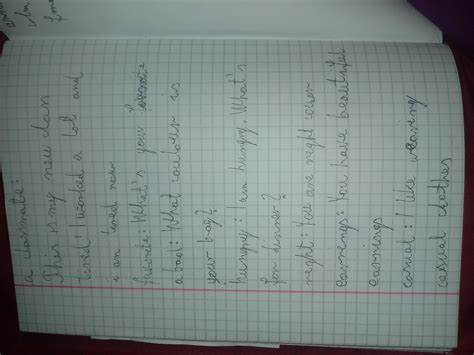 a classmate:
This is my new clas
tired: I worked a lot and
i am tired now
favorite: What's your favorite
a bag: What is
your bag?
hungry: I am hungry. What's
for dinner?
You are
earrings: You have beautiful
earrings
casual: I like wearing
casual clothes